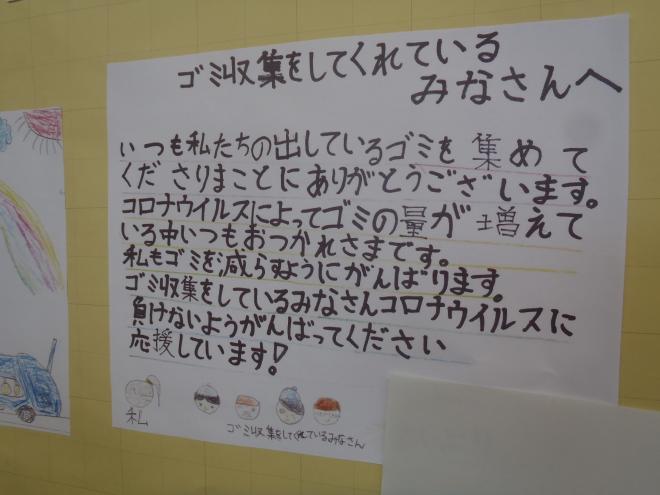 ゴミ収集をしてくれている
みなさんへ
いつも私たちの出しているゴミを集めて
くださりまことにありがとうございます。
コロナウイルスによってゴミの量が増えて
いる中いつもおつかれさまです。
私もゴミを減らすようにがんばります。
ゴミ収集をしているみなさんコロナウイルスに
負けないようがんばってください
応援しています!
私
ゴミ収集をしてくれているみなさん